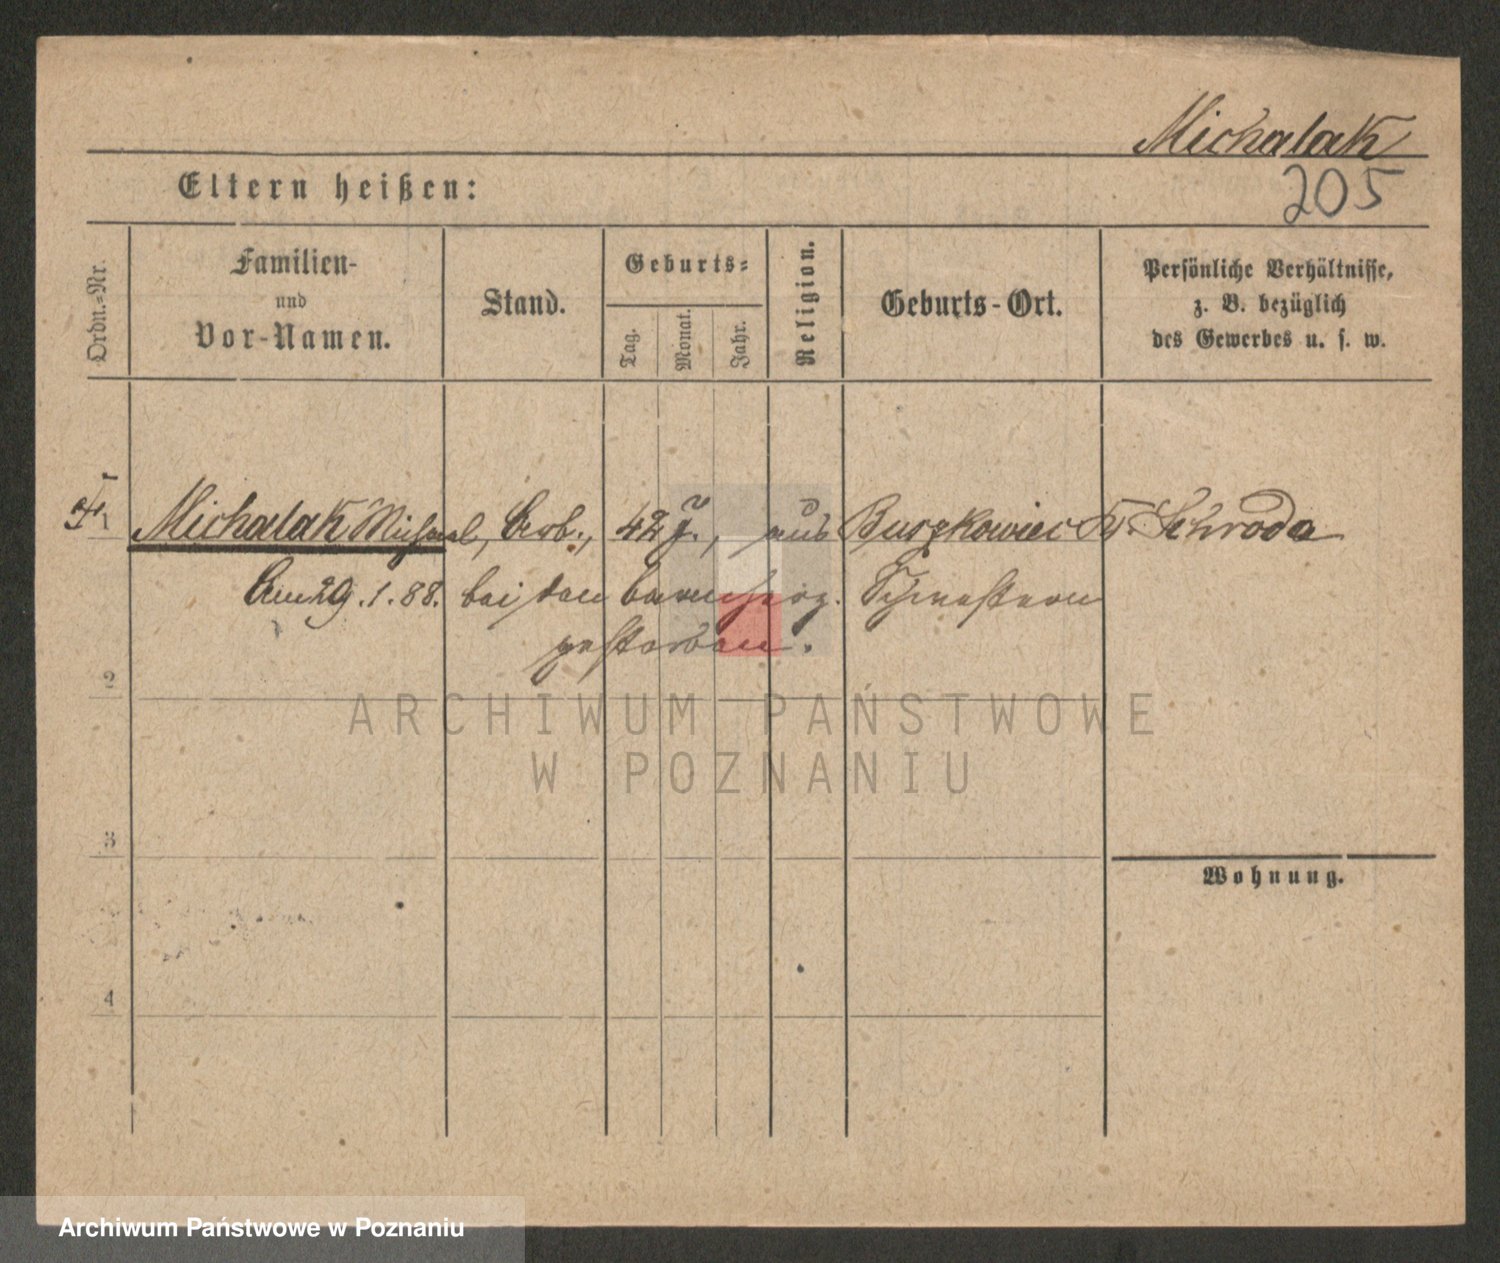 Michalak
205
Eltern heißen:
Ordn.-Nr.
Familien-
und
Vor-Namen.
Stand.
Geburts-
Tag.
Monat.
Jahr.
Religion.
Geburts-Ort.
Persönliche Verhältnisse,
z. B. bezüglich
des Gewerbes u. s. w.
1 Michalak Michael, Arb., 42 J., aus Buszkowiec Kr. Schroda
Am 29.1.88. bei den barmherz. Schwestern
gestorben.
2
ARCHIWUM PAŃSTWOWE
W POZNANIU
3
Wohnung.
4
Archiwum Państwowe w Poznaniu